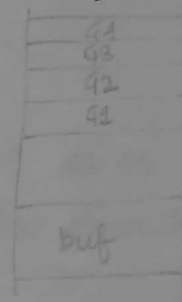 44
43
42
41
buf